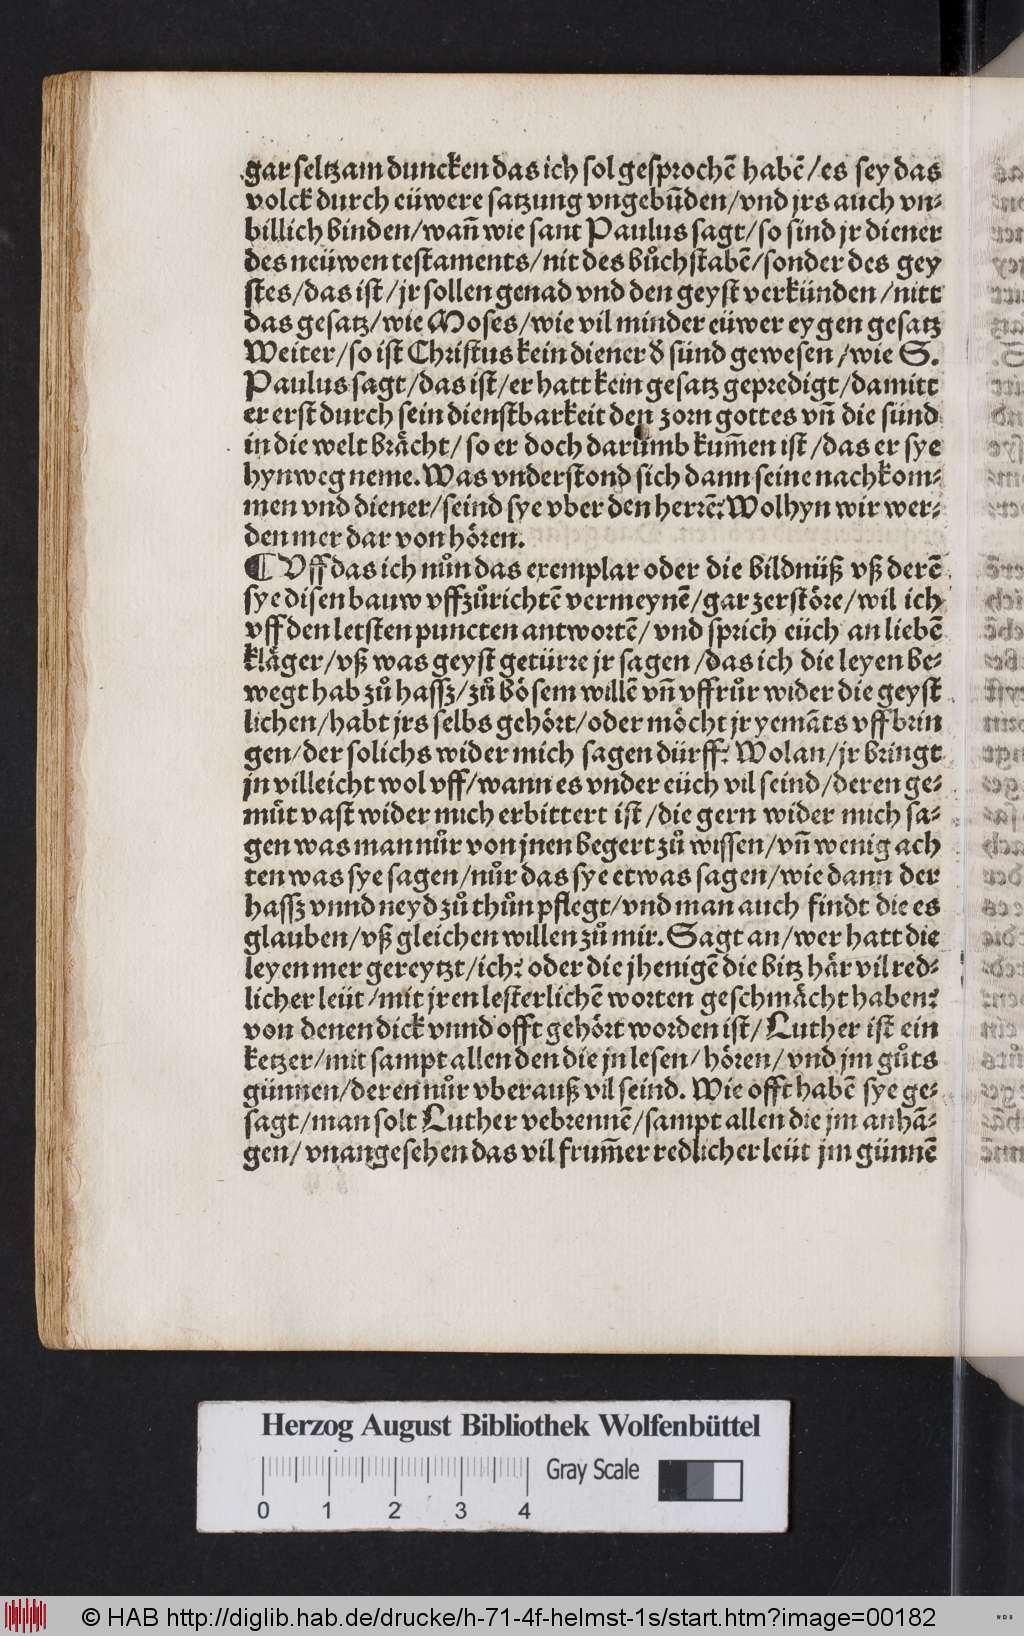 gar seltzam duncken das ich sol gesprochē habē/es sey das
volck durch eüwere satzung vngebūden/vnd jrs auch vn⸗
billich binden/wañ wie sant Paulus sagt/so sind jr diener
des neüwen testaments/nit des bůchstabē/sonder des gey
stes/das ist/jr sollen genad vnd den geyst verkünden/nitt
das gesatz/wie Moses/wie vil minder eüwer eygen gesatz
Weiter/so ist Christus kein diener d̄ sünd gewesen/wie S.
Paulus sagt/das ist/er hatt kein gesatz gepredigt/damitt
er erst durch sein dienstbarkeit den zorn gottes vñ die sünd
in die welt brächt/so er doch darumb kum̄en ist/das er sye
hynweg neme. Was vnderstond sich dann seine nachkom⸗
men vnd diener/seind sye vber den herrē? Wolhyn wir wer⸗
den mer dar von hören.
¶ Vff das ich nůn das exemplar oder die bildnüß vß derē
sye disen bauw vffzůrichtē vermeynē/gar zerstöre/wil ich
vff den letsten puncten antwortē/vnd sprich eüch an liebē
kläger/vß was geyst getürre jr sagen/das ich die leyen be⸗
wegt hab zů hassz/zů bösem willē vñ vffrůr wider die geyst
lichen/habt jrs selbs gehört/oder möcht jr yemāts vffbrin
gen/der solichs wider mich sagen dürff? Wolan/jr bringt
jn villeicht wol vff/wann es vnder eüch vil seind/deren ge⸗
müt vast wider mich erbittert ist/die gern wider mich sa⸗
gen was man nůr von jnen begert zů wissen/vñ wenig ach
ten was sye sagen/nůr das sye etwas sagen/wie dann der
hassz vnnd neyd zů thůn pflegt/vnd man auch findt die es
glauben/vß gleichen willen zů mir. Sagt an/wer hatt die
leyen mer gereytzt/ich? oder die jhenigē die bitz här vil red⸗
licher leüt/mit jren lesterlichē worten geschmächt haben?
von denen dick vnnd offt gehört worden ist/Luther ist ein
ketzer/mit sampt allen den die jn lesen/hören/vnd jm gůts
günnen/deren nůr vberauß vil seind. Wie offt habē sye ge⸗
sagt/man solt Luther vebrennē/sampt allen die jm anhā⸗
gen/vnangesehen das vil frum̄er redlicher leüt jm günnē
Herzog August Bibliothek Wolfenbüttel
Gray Scale
0 1 2 3 4
© HAB http://diglib.hab.de/drucke/h-71-4f-helmst-1s/start.htm?image=00182